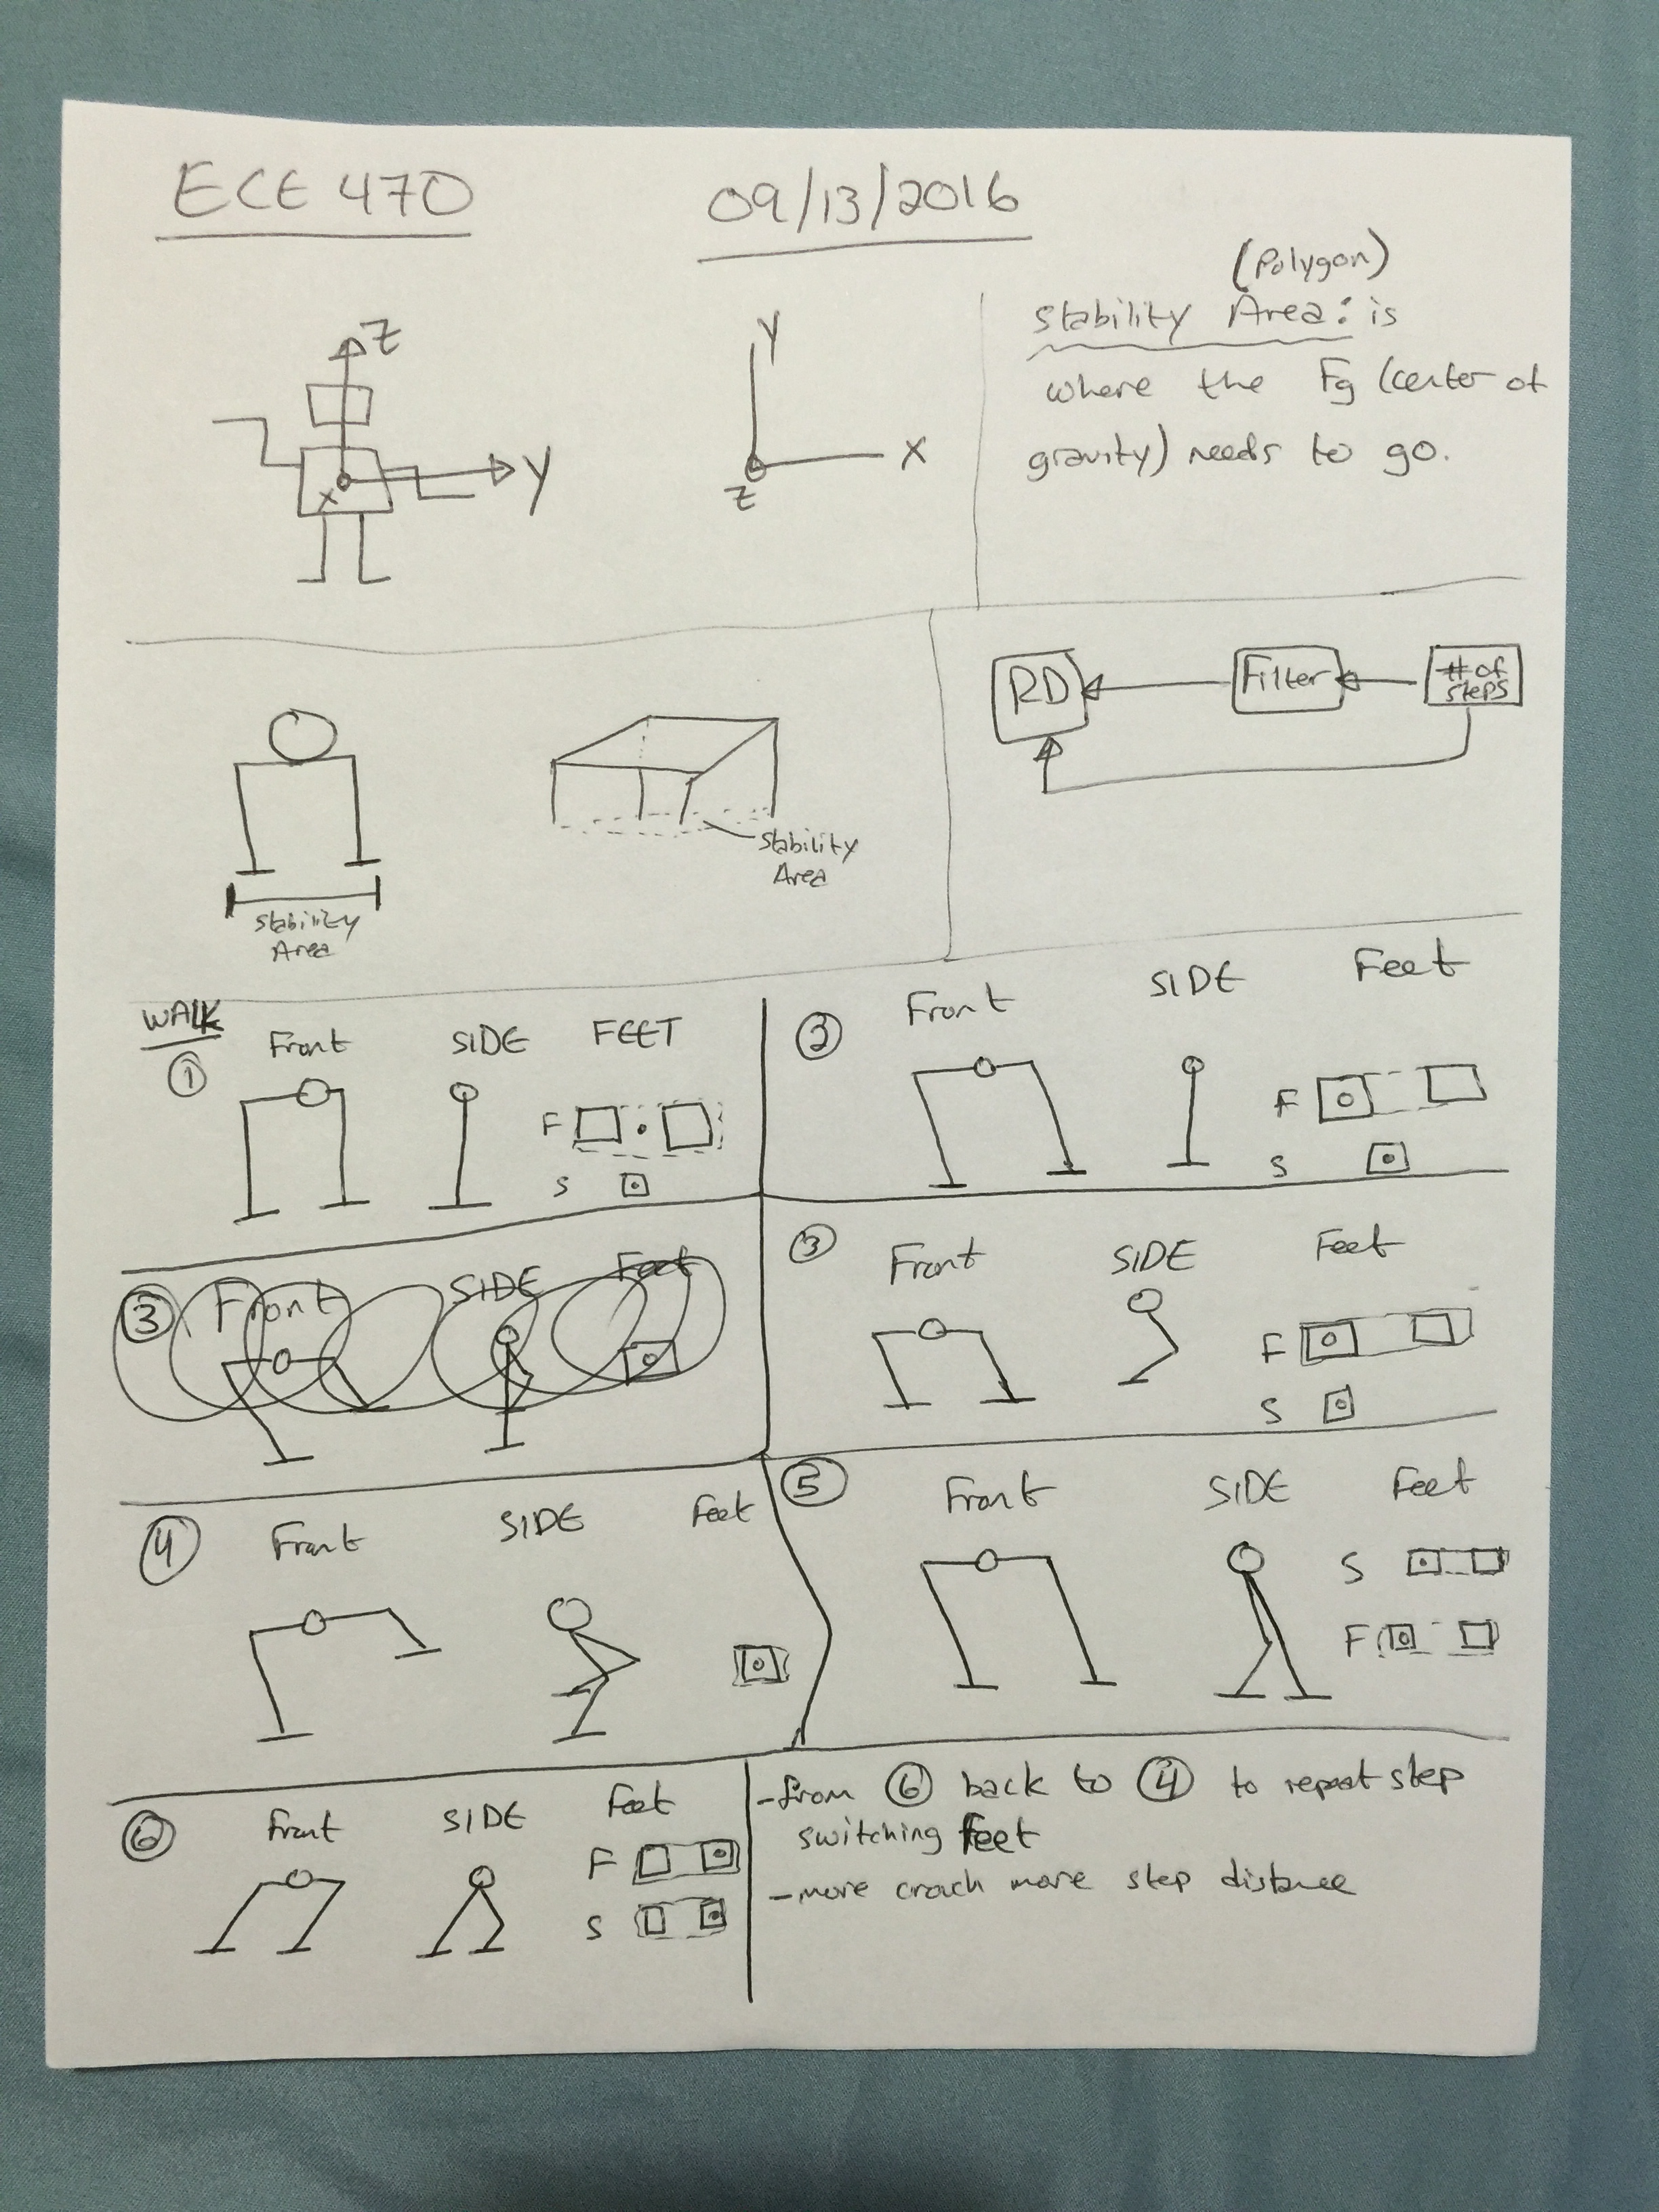 ECE 470
09/13/2016
Z
Y
X
Y
X
Z
(Polygon)
Stability Area: is
where the Fg (center of
gravity) needs to go.
Stability
Area
Stability
Area
RD
Filter
# of
steps
WALK
① Front SIDE FEET
F
S
② Front SIDE Feet
F
S
③ Front SIDE Feet
③ Front SIDE Feet
F
S
④ Front SIDE Feet
⑤ Front SIDE Feet
S
F
⑥ Front SIDE Feet
F
S
-from ⑥ back to ④ to repeat step
switching feet
-more crouch more step distance